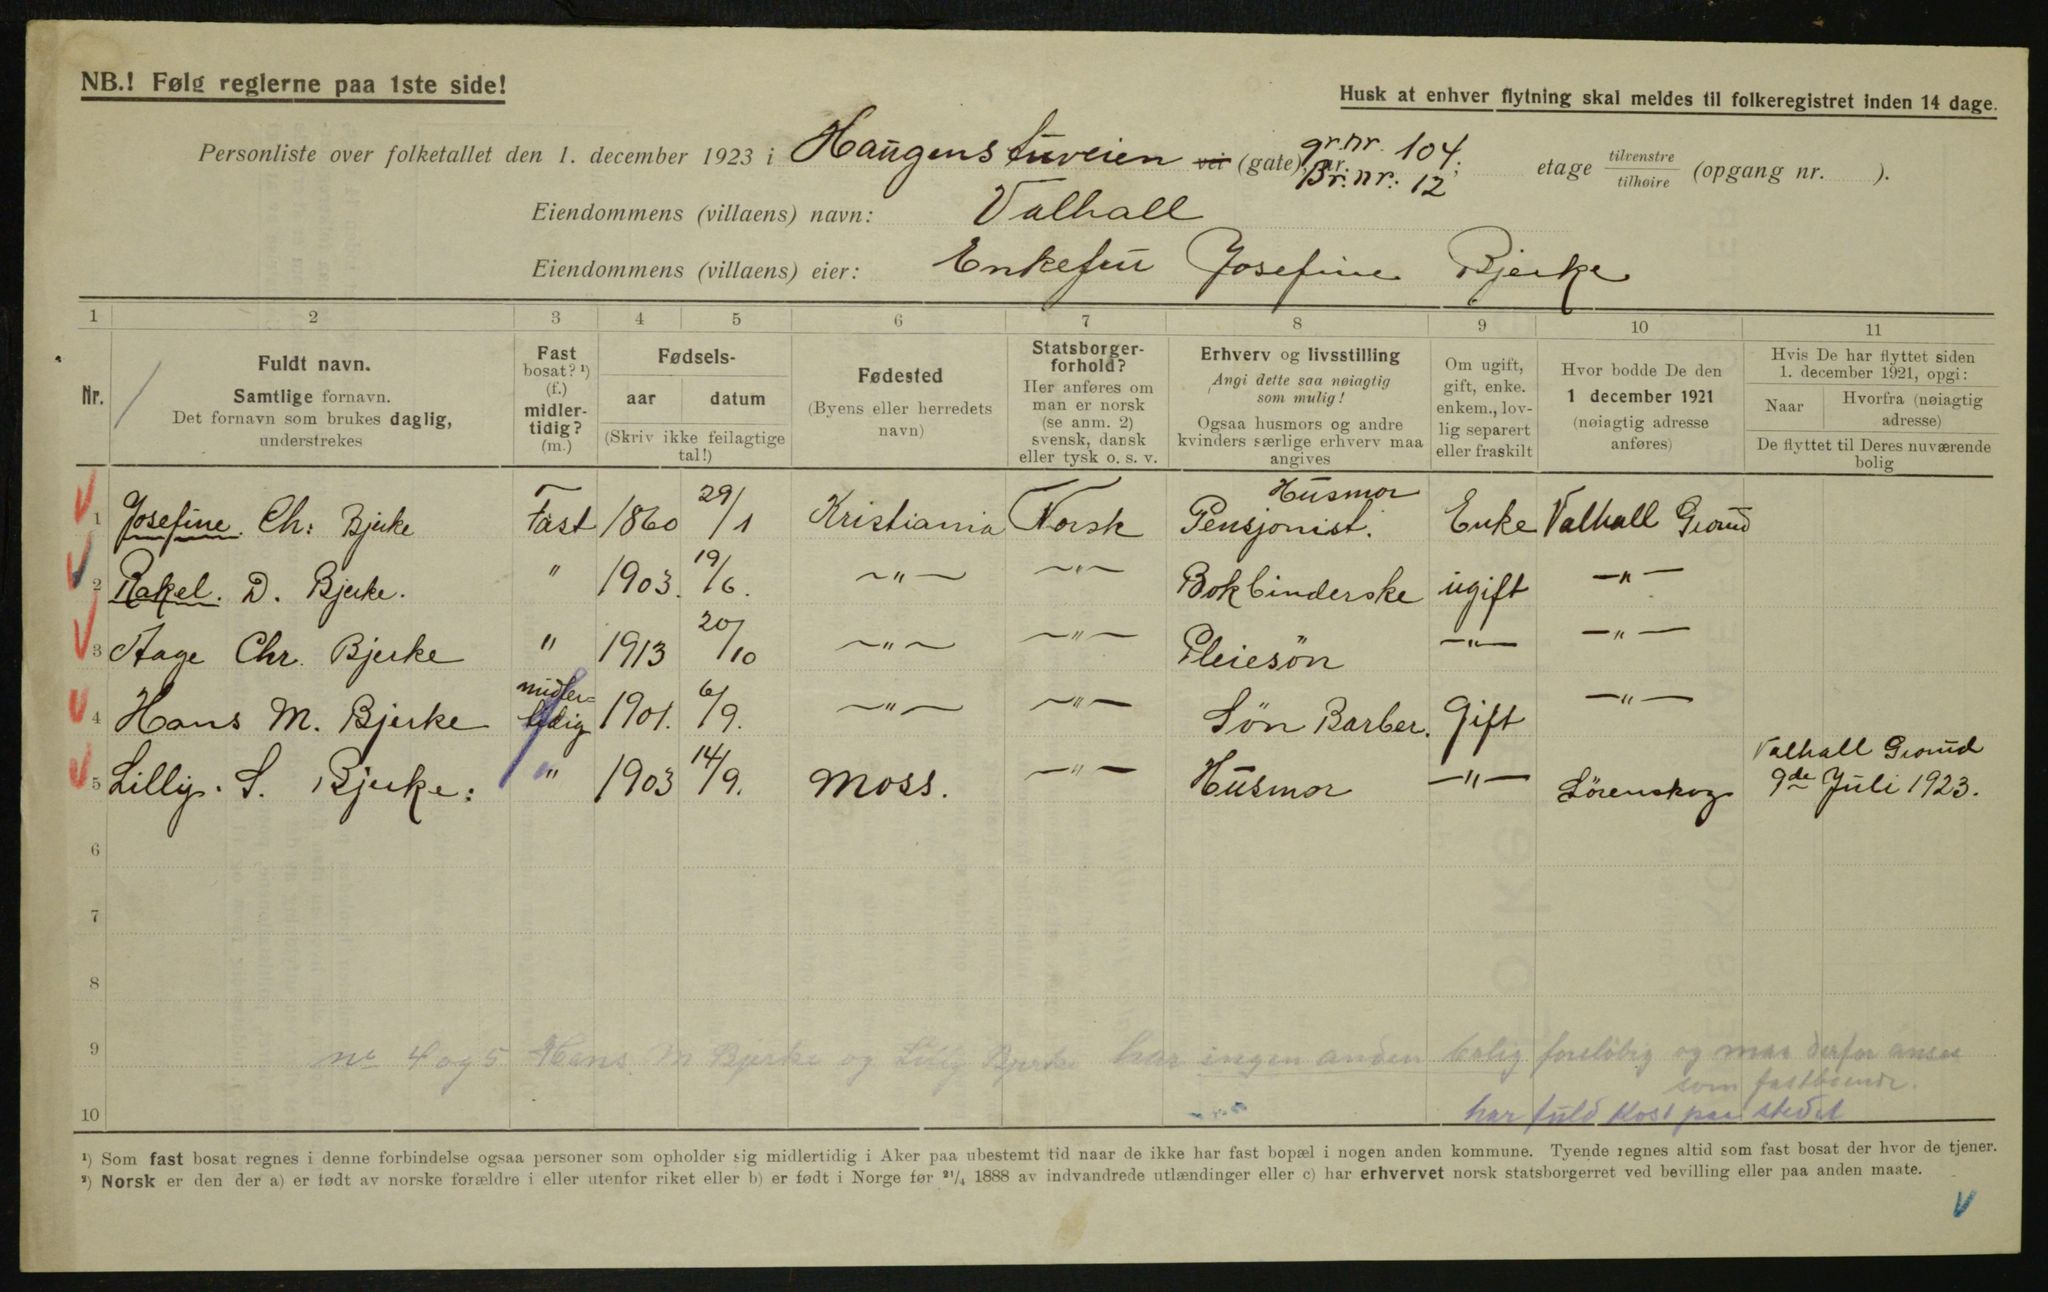 NB.! Følg reglerne paa 1ste side!
Husk at enhver flytning skal meldes til folkeregistret inden 14 dage.
Personliste over folketallet den 1. december 1923 i Haugenstuveien vei (gate), nr. gr.nr. 104; Br.nr.: 12 etage tilvenstre tilhøire (opgang nr. ).
Eiendommens (villaens) navn: Valhall
Eiendommens (villaens) eier: Enkefru Josefine Bjerke
1 2 3 4 5 6 7 8 9 10 11
Nr.
Fuldt navn.
Samtlige fornavn.
Det fornavn som brukes daglig,
understrekes
Fast
bosat? ¹)
(f.)
midler-
tidig?
(m.)
Fødsels-
aar datum
(Skriv ikke feilagtige
tal!)
Fødested
(Byens eller herredets
navn)
Statsborger-
forhold?
Her anføres om
man er norsk
(se anm. 2)
svensk, dansk
eller tysk o. s. v.
Erhverv og livsstilling
Angi dette saa nøiagtig
som mulig!
Ogsaa husmors og andre
kvinders særlige erhverv maa
angives
Om ugift,
gift, enke.
enkem., lov-
lig separert
eller fraskilt
Hvor bodde De den
1 december 1921
(nøiagtig adresse
anføres)
Hvis De har flyttet siden
1. december 1921, opgi:
Naar Hvorfra (nøiagtig
adresse)
De flyttet til Deres nuværende
bolig
1 Josefine Ch: Bjerke Fast 1860 29/1 Kristiania Norsk Husmor Pensjonist. Enke Valhall Grorud
2 Rakel. D. Bjerke. " 1903. 19/6. —"— —"— Bokbinderske ugift —"—
3 Aage Chr. Bjerke " 1913 20/10 —"— —"— Pleiesøn —"— —"—
4 Hans M. Bjerke midler-tidig 1901. 6/9. —"— —"— Søn Barber. Gift —"—
5 Lilly. S. Bjerke: " 1903 14/9. Moss. —"— Husmor —"— Sörenskog Valhall Grorud 9de Juli 1923.
6
7
8
9
no 4 og 5 Hans M Bjerke og Lilly Bjerke har ingen anden bolig foreløbig og maa derfor anses
som fastboende.
10
har fuld kost paa stedet
¹) Som fast bosat regnes i denne forbindelse ogsaa personer som opholder sig midlertidig i Aker paa ubestemt tid naar de ikke har fast bopæl i nogen anden kommune. Tyende regnes altid som fast bosat der hvor de tjener.
²) Norsk er den der a) er født av norske forældre i eller utenfor riket eller b) er født i Norge før ²¹/₄ 1888 av indvandrede utlændinger eller c) har erhvervet norsk statsborgerret ved bevilling eller paa anden maate.